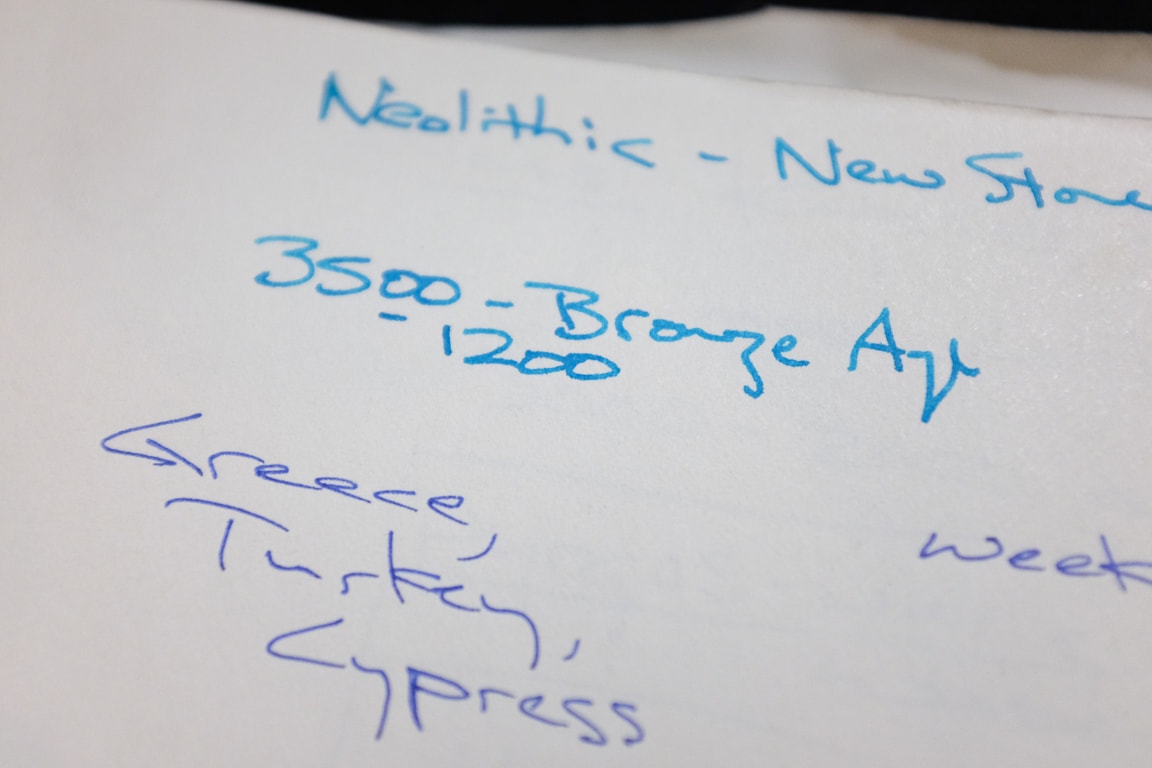 Neolithic - New Stone
3500 - Bronze Age
- 1200
Greece,
Turkey,
week
Cypress